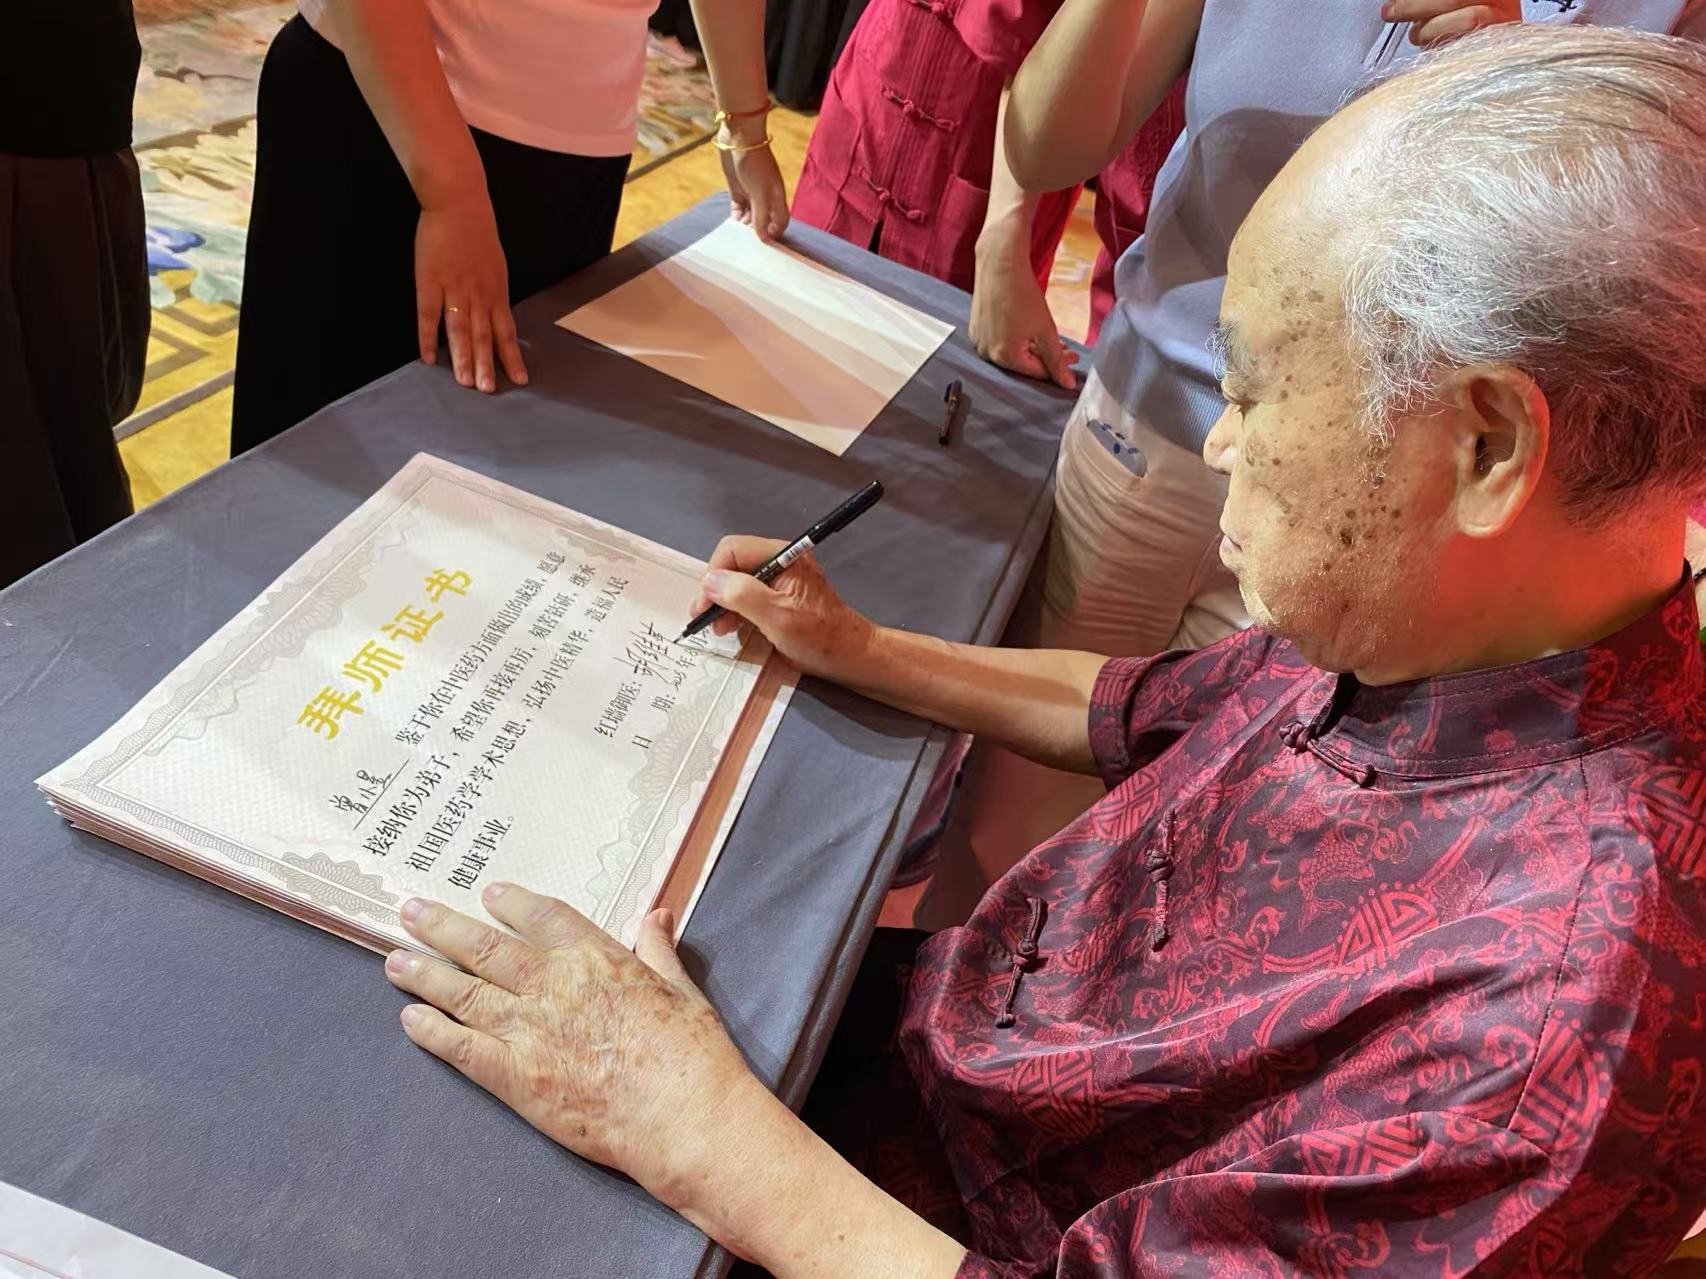 拜师证书
曾小星
鉴于你在中医药方面做出的成绩，愿意
接纳你为弟子，希望你再接再厉，刻苦钻研，继承
祖国医药学学术思想，弘扬中医精华，造福人民
健康事业。
红墙御医：胡维勤
日 期：2025年8月